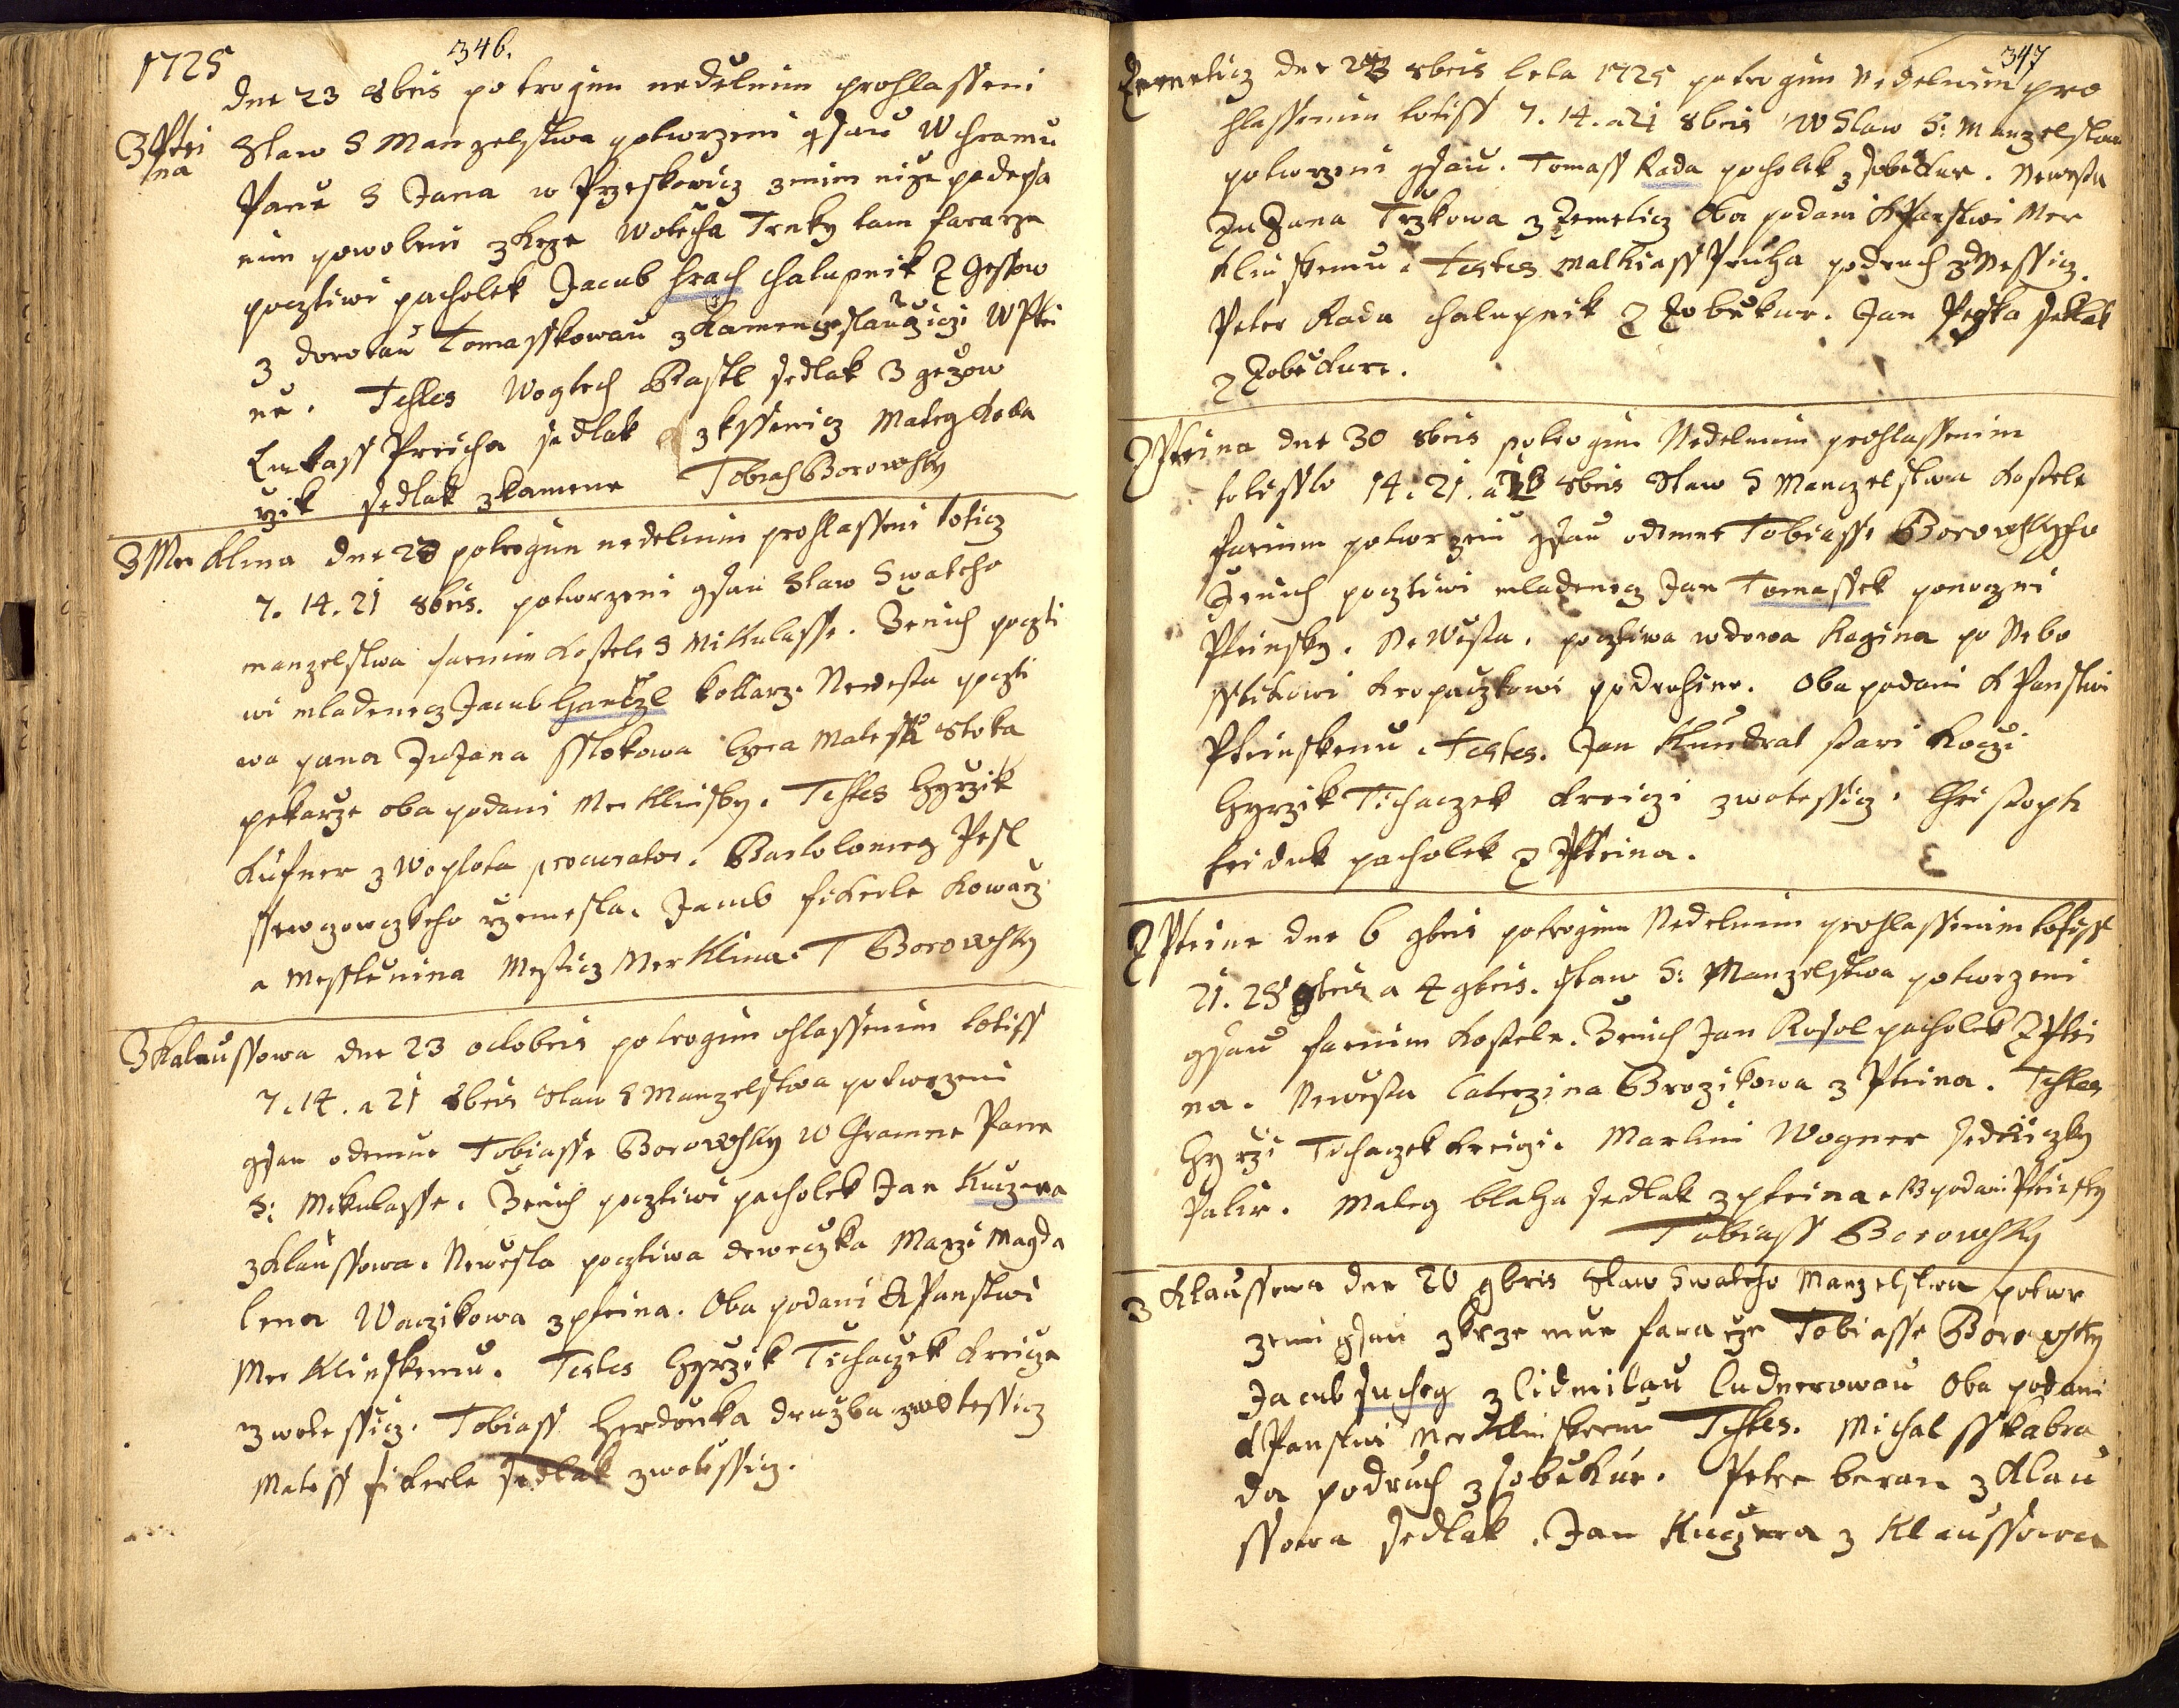 346.
1725
dne 23 8bris po trogim nedelnim prohlasseni
Z Ptei
na
Staw S Manzelstwa potwrzeni gsau W chramu
Panie S Jana w Przeskowicz zmim nize podepsa
nim powoleni skrze Wotecha Trnky tam fararze
pocztiwi pacholek Jacub hrach chalupnik Z Gezow
z dorotau Tomasskowau
ne. Testes Wogtech Bastl sedlak z gezow
Lukass Prucha sedlak z kssenicz Mateg
rzik sedlak z kamene Tobiass Borowsky
Z Merklina dne 23 po trogim nedelnim prohlasseni toticz
7. 14. 21 8bris. potwrzeni gsau Staw Swateho
manzelstwa farnim kostele S Mikulasse. Zenich poczti
wi mladenecz Jacub Hantzl kollarz. Newesta poczti
wa pana Zuzana sstokowa Czera Matesa Stoka
pekarze oba podani Merklinsky. Testes Gyrzik
Kufner z Woplota procurator. Bartolomeg Pesl
ssewczowczkeho rzemesla. Jacub fikerle kowarz
a Messtienina Mesticz Merklina. T Borowsky
Z Kalaussowa dne 23 octobris po trogim ohlassenim totiss
7. 14. a 21 8bris Staw S Manzelstwa potwrzeni
gsau odemne Tobiasse Borowsky W Chramie Panie
S: Mikulasse. Zenich pocztiwi pacholek Jan Kuczera
z Klaussowa. Newesta pocztiwa deweczka Marzi Magda
lena Waczikowa z pteina. Oba podani k Panstwi
Merklinskemu. Testes Gyrzik Tichaczek kreicze
z wotessicz. Tobiass Herdouka druzba z wotessicz
Matess fikerle sedlak z wotessicz.
347
Zemeticz dne 23 8bris leta 1725 po trogim Nedelnim pro
hlassenim totiss 7. 14. a 21 8bris W Staw S: Manzelstwa
potwrzeni gsau. Tomass Rada pacholek z sobiekur. Newesta
Zuzana Trzkowa z Zemeticz Oba podani k Panstwi Mer
klinskemu. Testes Mathiass Pruha podruh z Messicz.
Peter Rada chalupnik Z Zobiekur. Jan Peska sedlak
z Zobiekure.
Z Pteina dne 30 8bris po trogim Nedelnim prohlassenim
totissto 14. 21. a 28 8bris Staw S Manczelstwa kostele
farnim potwrzeni gsau odemne Tobiasse Borowskyho
Zenich pocztiwi mladenecz Jan Tomassek ponoczni
Pteinsky. Newesta. pocztiwa wdowa Regina po Nebo
sstikowi kropaczkowi podruhine. Oba podani k Panstwi
Pteinskemu. Testes. Jan Kundrat stari koczi
Gyrzik Tichaczek kreiczi z wotessicz. Christoph
fridrik pacholek Z Pteina.
Z Pteina dne 6 9bris po trogim Nedelnim prohlassenim totiss
21. 28 8bris a 4 9bris. Staw S: Manzelstwa potwrzeni
gsau farnim kostele. Zenich Jan Rosol pacholek Z Ptei
na. Newesta Caterzina Brozikowa z Pteina. Testes
Gyrzi Tichaczek kreiczi. Martin Wogner sedliczky
Palir. Mateg blaha sedlak z pteina. podani Pteinsky
Tobiass Borowsky
Z Klaussowa dne 20 9bris Staw Swateho Manzelstwa potwr
zeni gsau skrze mne fararze Tobiasse Borowsky
Jacub sucheg z lidmilau ludnerowau Oba podani
k Panstwi Merklinskemu Testes. Michal sskabra
da podruh z sobiekur. Petr beran z Klau
ssowa sedlak. Jan Kuczera z Klaussowa